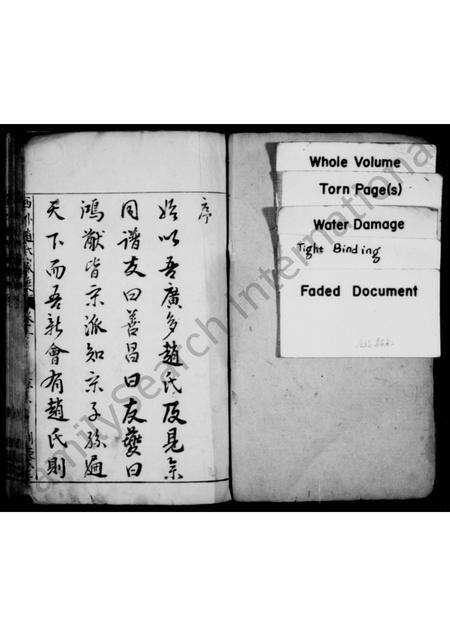 序
始以吾廣多趙氏及見宗
同譜友曰善昌曰友夔曰
鴻猷皆宗派知宗子孫遍
天下而吾新會有趙氏則
Whole Volume
Torn Page(s)
Water Damage
Tight Binding
Faded Document
FamilySearch International